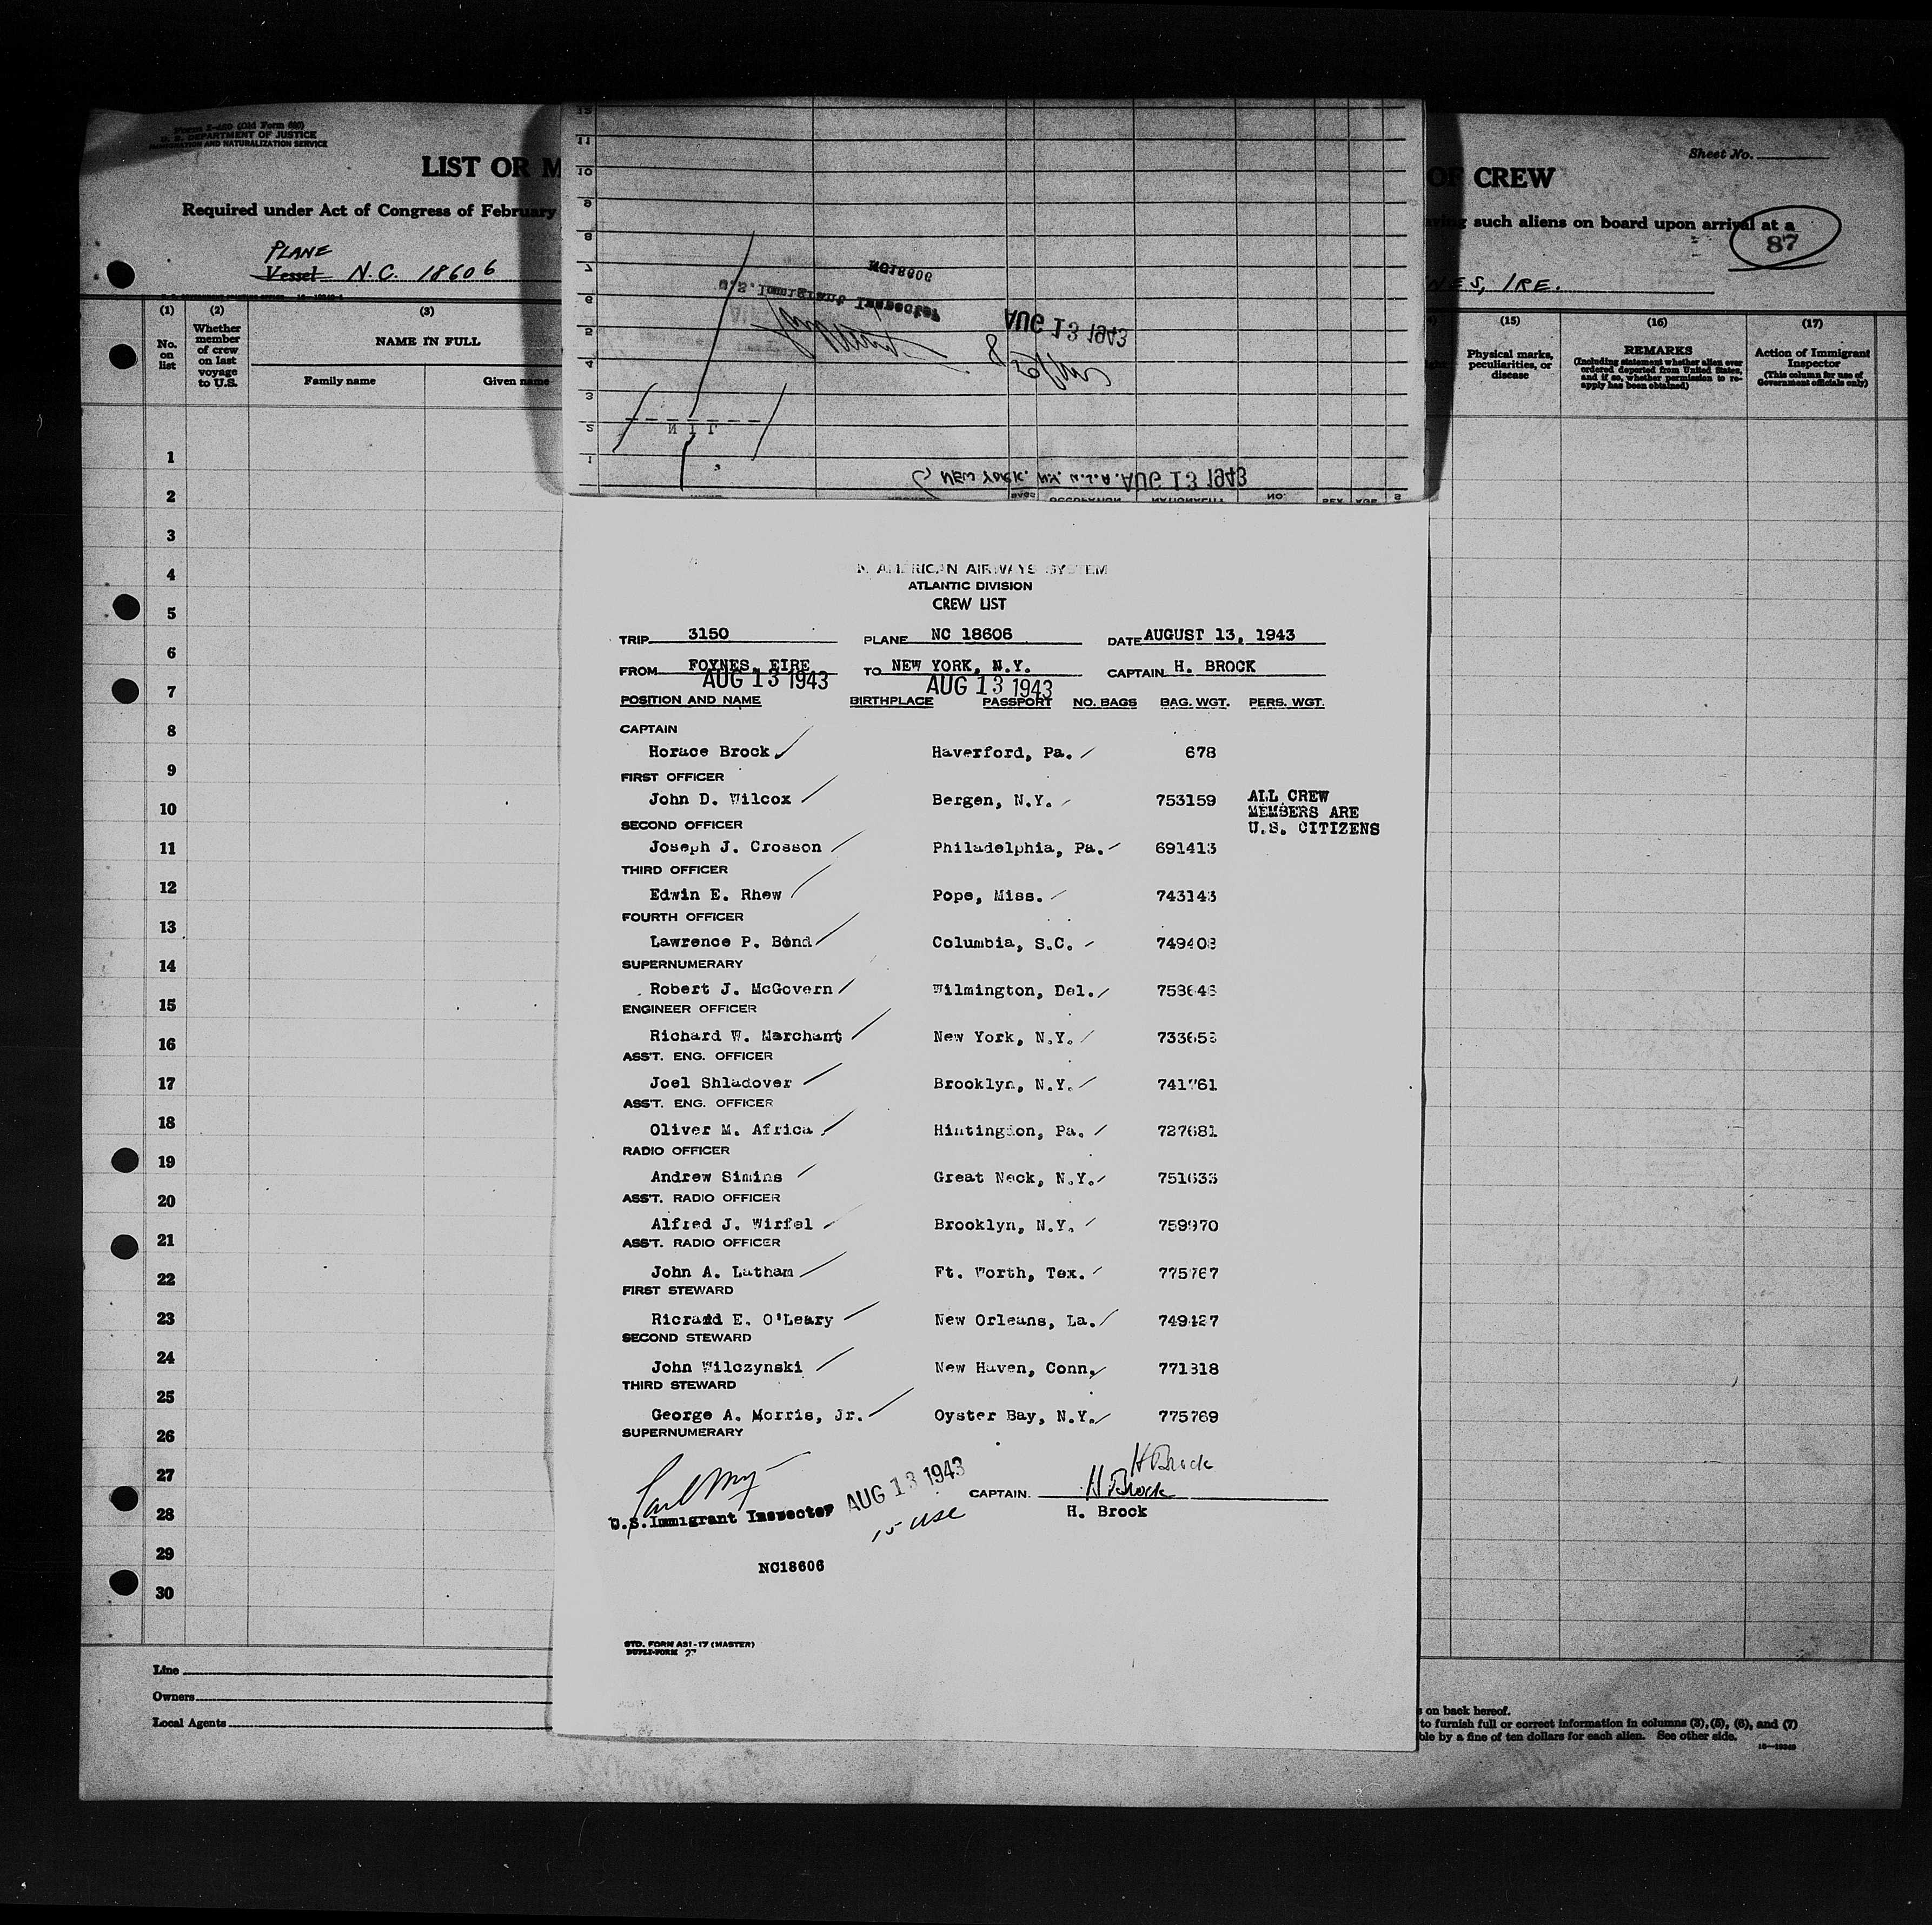 Form I-480 (Old Form 680)
U. S. DEPARTMENT OF JUSTICE
IMMIGRATION AND NATURALIZATION SERVICE
LIST OR M
OF CREW
Sheet No.
Required under Act of Congress of February
such aliens on board upon arrival at a
87
PLANE
Vessel N.C. 18606
NES, IRE.
(1) (2) (3)
No. on list
Whether member of crew on last voyage to U.S.
NAME IN FULL
Family name Given name
(15) (16) (17)
Physical marks, peculiarities, or disease
REMARKS
(Including statement whether alien ever ordered deported from United States, and if so, whether permission to re-apply has been obtained)
Action of Immigrant Inspector
(This column for use of Government officials only)
1
2
3
4
5
6
7
8
9
10
11
12
13
14
15
16
17
18
19
20
21
22
23
24
25
26
27
28
29
30
11
10
9
8
7
6
5
4
3
2
1
NC18606
U.S. Immigrant Inspector
AUG 13 1943
NIL
NEW YORK. N.Y. U.S.A. AUG 13 1943
BAGS OCCUPATION NATIONALITY NO. SEX AGE
N AMERICAN AIRWAYS SYSTEM
ATLANTIC DIVISION
CREW LIST
TRIP 3150 PLANE NC 18606 DATE AUGUST 13, 1943
FROM FOYNES, EIRE TO NEW YORK, N.Y. CAPTAIN H. BROCK
AUG 13 1943 AUG 13 1943
POSITION AND NAME BIRTHPLACE PASSPORT NO. BAGS BAG. WGT. PERS. WGT.
CAPTAIN
Horace Brock Haverford, Pa. 678
FIRST OFFICER
John D. Wilcox Bergen, N.Y. 753159
ALL CREW
MEMBERS ARE
U.S. CITIZENS
SECOND OFFICER
Joseph J. Crosson Philadelphia, Pa. 691413
THIRD OFFICER
Edwin E. Rhew Pope, Miss. 743143
FOURTH OFFICER
Lawrence P. Bond Columbia, S.C. 749408
SUPERNUMERARY
Robert J. McGovern Wilmington, Del.
ENGINEER OFFICER
Richard W. Marchant New York, N.Y.
ASS'T. ENG. OFFICER
Joel Shladover Brooklyn, N.Y. 741761
ASS'T. ENG. OFFICER
Oliver M. Africa Hintingdon, Pa. 727681
RADIO OFFICER
Andrew Simins Great Neck, N.Y. 751633
ASS'T. RADIO OFFICER
Alfred J. Wirfel Brooklyn, N.Y. 759970
ASS'T. RADIO OFFICER
John A. Latham Ft. Worth, Tex. 775767
FIRST STEWARD
Ricrard E. O'Leary New Orleans, La. 749427
SECOND STEWARD
John Wilczynski New Haven, Conn. 771318
THIRD STEWARD
George A. Morris, Jr. Oyster Bay, N.Y. 775769
SUPERNUMERARY
H Brock
AUG 13 1943 CAPTAIN. H Brock
U.S. Immigrant Inspector H. Brock
15 USC
NC18606
STD. FORM ASI-17 (MASTER)
DUPLI-FORM 27
Line
Owners
Local Agents
on back hereof.
to furnish full or correct information in columns (3), (5), (6), and (7)
ble by a fine of ten dollars for each alien. See other side.